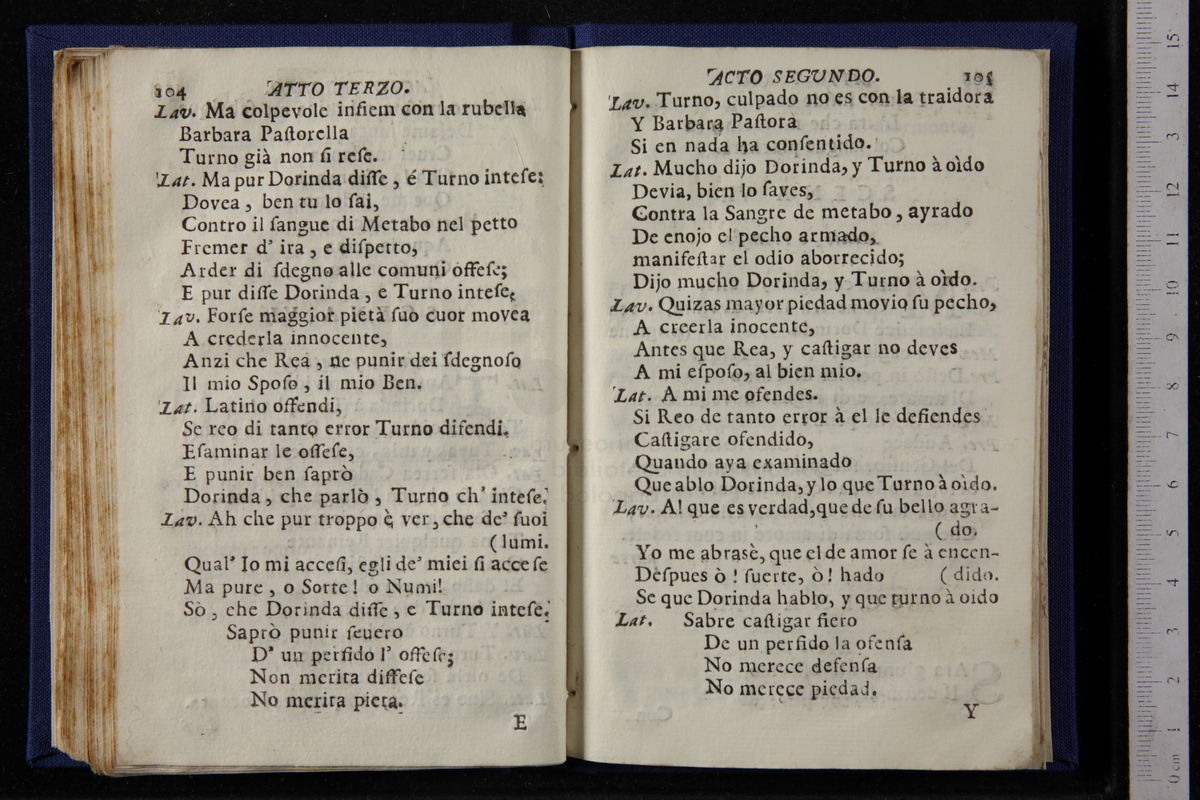 104 ATTO TERZO.
Lav. Ma colpevole inſiem con la rubella
Barbara Paſtorella
Turno già non ſi reſe.
Lat. Ma pur Dorinda diſſe, é Turno inteſe:
Dovea, ben tu lo ſai,
Contro il ſangue di Metabo nel petto
Fremer d' ira, e diſpetto,
Arder di ſdegno alle comuni offeſe;
E pur diſſe Dorinda, e Turno inteſe.
Lav. Forſe maggior pietà ſuo cuor movea
A crederla innocente,
Anzi che Rea, ne punir dei ſdegnoſo
Il mio Spoſo, il mio Ben.
Lat. Latino offendi,
Se reo di tanto error Turno difendi.
Eſaminar le offeſe,
E punir ben ſaprò
Dorinda, che parlò, Turno ch' inteſe.
Lav. Ah che pur troppo è ver, che de' ſuoi
(lumi.
Qual' Io mi acceſi, egli de' miei ſi acceſe
Ma pure, o Sorte! o Numi!
Sò, che Dorinda diſſe, e Turno inteſe.
Saprò punir ſeuero
D' un perfido l' offeſe;
Non merita diffeſe
No merita pieta.
E
ACTO SEGVNDO. 105
Lav. Turno, culpado no es con la traidora
Y Barbara Paſtora
Si en nada ha conſentido.
Lat. Mucho dijo Dorinda, y Turno à oìdo
Devia, bien lo ſaves,
Contra la Sangre de metabo, ayrado
De enojo el pecho armado,
manifeſtar el odio aborrecido;
Dijo mucho Dorinda, y Turno à oìdo.
Lav. Quizas mayor piedad movio ſu pecho,
A creerla inocente,
Antes que Rea, y caſtigar no deves
A mi eſpoſo, al bien mio.
Lat. A mi me ofendes.
Si Reo de tanto error à el le defiendes
Caſtigare ofendido,
Quando aya examinado
Que ablo Dorinda, y lo que Turno à oìdo.
Lav. A! que es verdad, que de ſu bello agra-
(do.
Yo me abrasè, que el de amor ſe à encen-
Deſpues ò! ſuerte, ò! hado (dido.
Se que Dorinda hablo, y que turno à oido
Lat. Sabre caſtigar fiero
De un perfido la ofenſa
No merece defenſa
No merece piedad.
Y